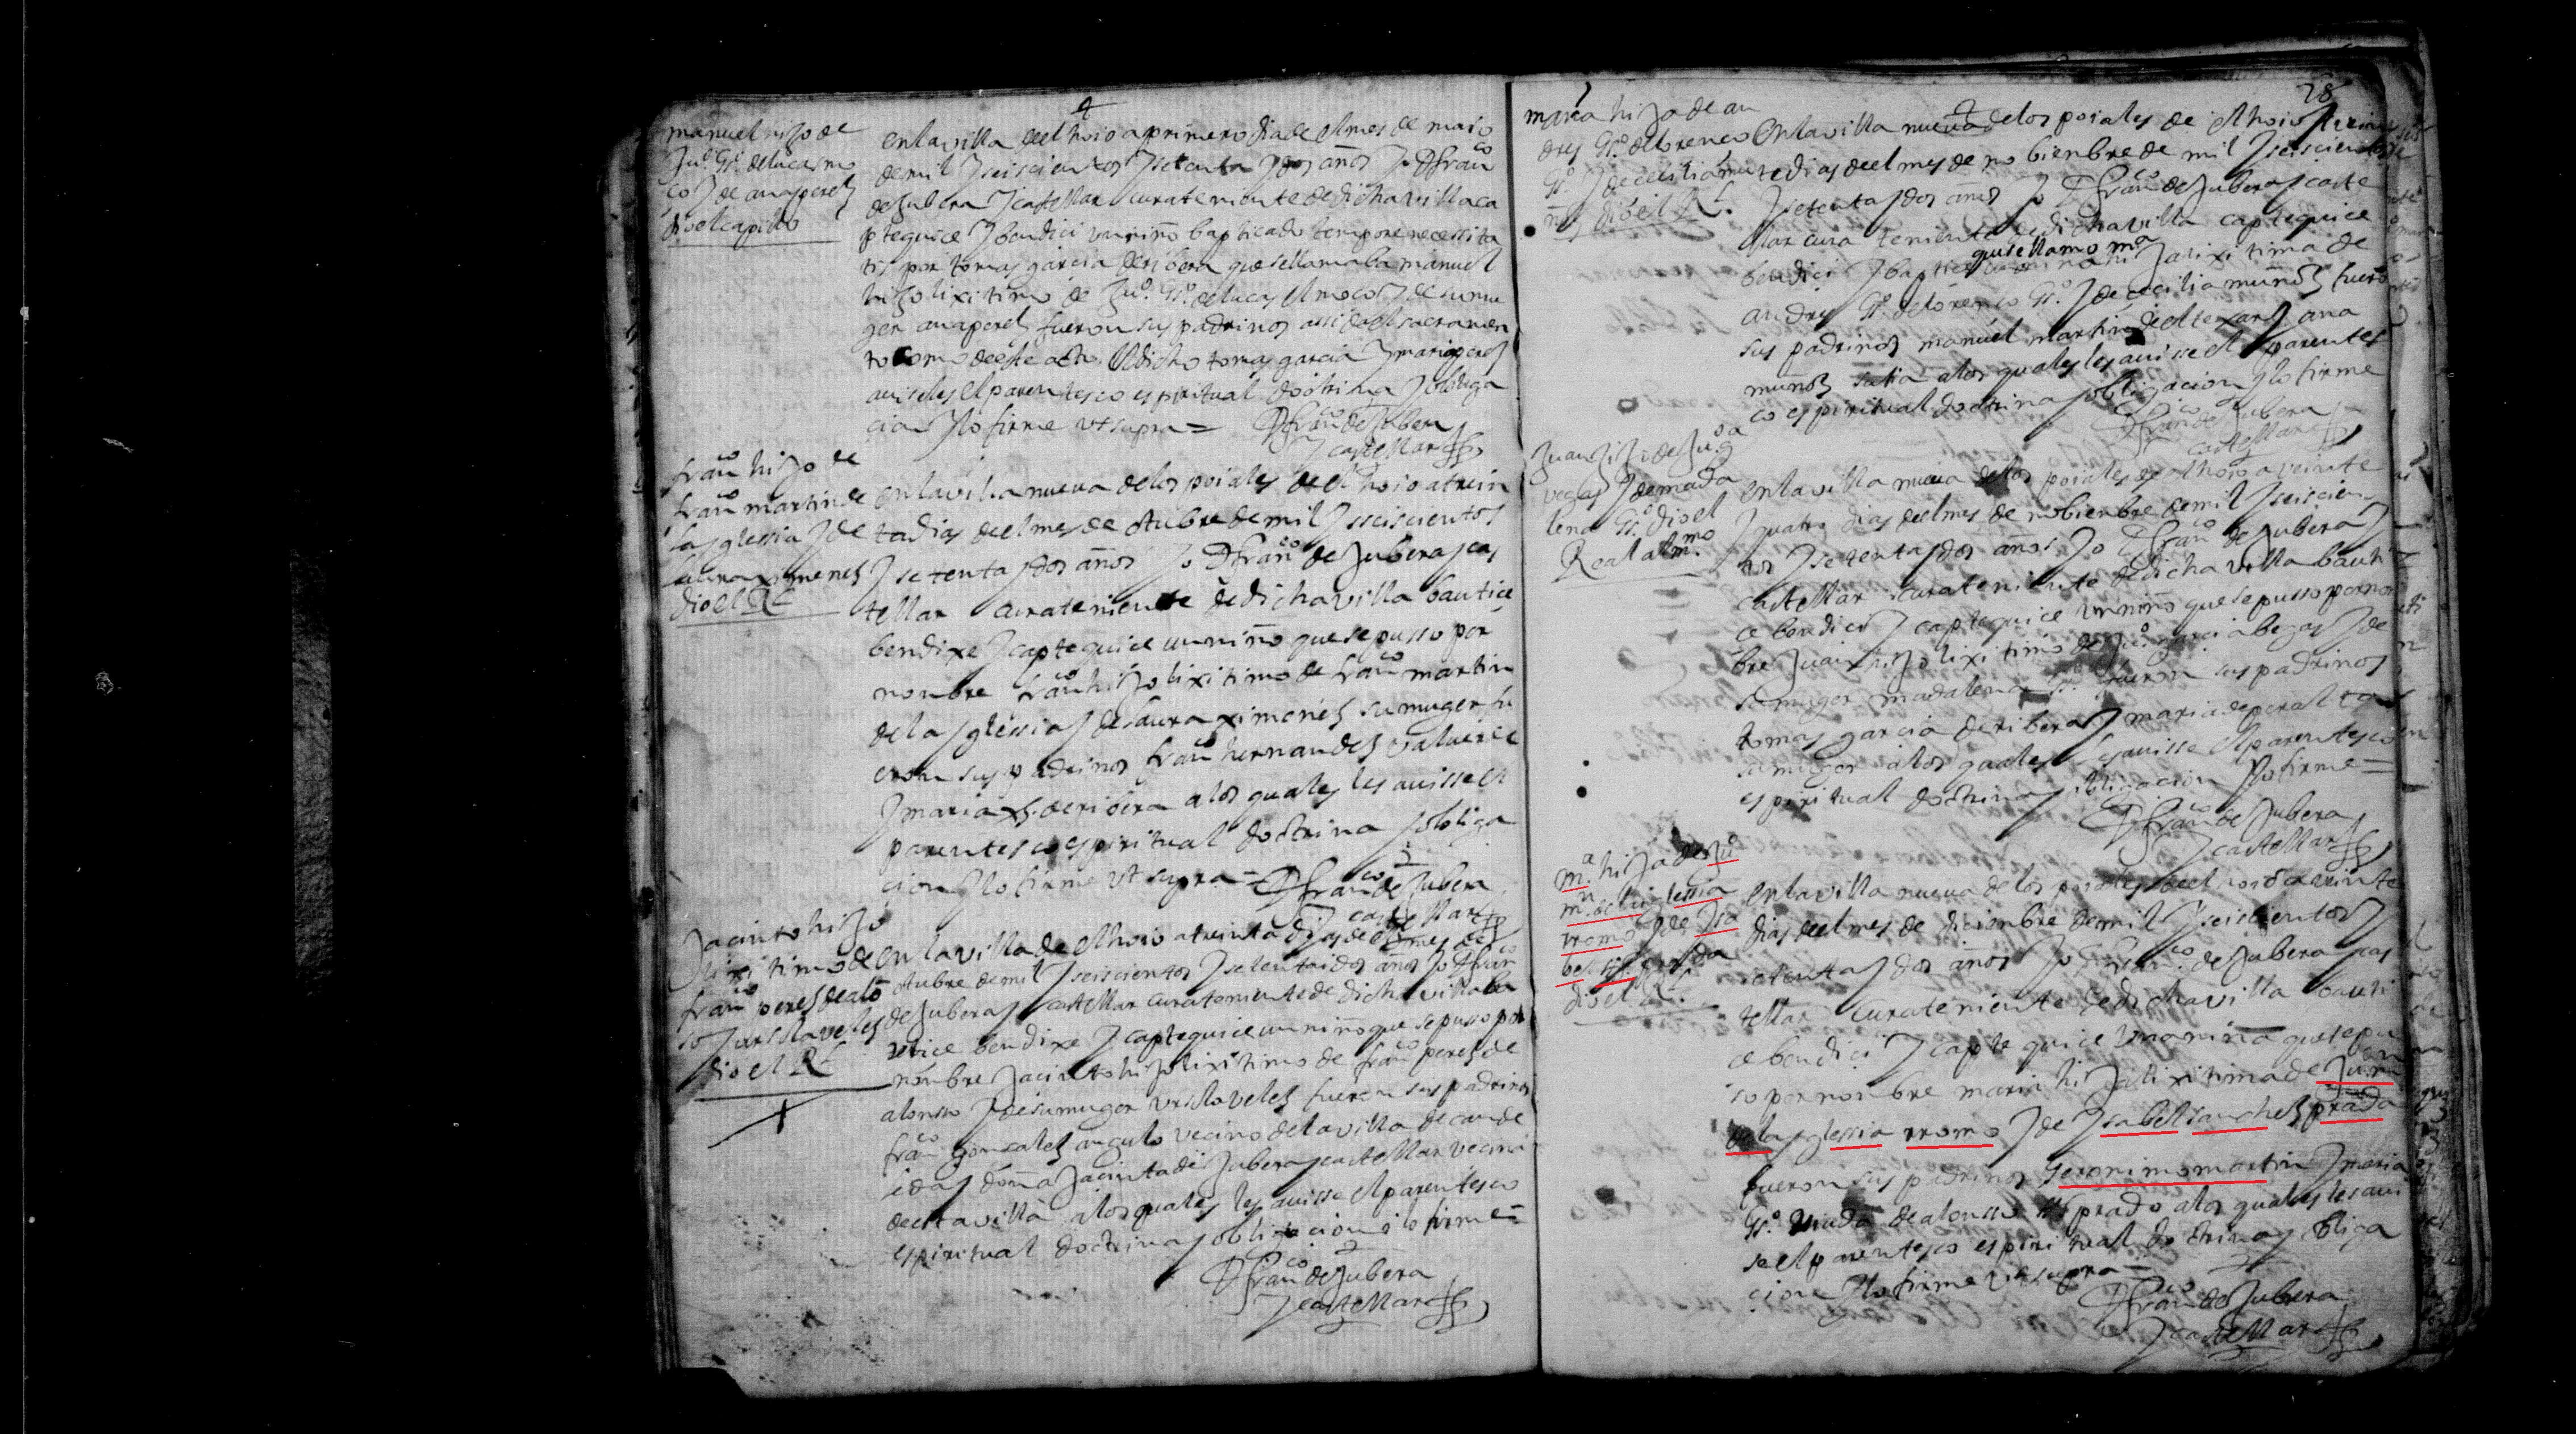 manuel hijo de
Juº. Gsº. de lucas mo
ço J de ana perez
dio el capillo
en la villa deel hoio a primero dia de el mes de maio
de mil J seiscientos J setenta J dos años Jo D franco
de Jubera J castellar cura teniente de dicha villa ca
ptequice J bendici un niño bapticado tempore necessita
tis por tomas garcia de ribera que se llamaba manuel
hijo lixitimo de Juº. Gsº. de lucas el moço J de su mu
ger ana perez fueron sus padrinos assi de el sacramen
to como de este acto. el dicho tomas garcia J maria perez
auiseles el parentesco espiritual doctrina J obliga
cion J lo firme ut supra = D franco de Jubera
J castellar
franco hijo de
franco martin de
la Jglessia J de
laura ximenez
dio el Rl
en la villa nueua de los poiales de el hoio a trein
ta dias de el mes de otubre de mil J seiscientos
J setenta J dos años Jo D franco de Jubera J cas
tellar cura teniente de dicha villa bautice
bendixe J captequice un niño que se pusso por
nonbre franco hijo lixitimo de franco martin
de la Jglessia J de laura ximenez su muger fu
eron sus padrinos franco hernandez
J maria de ribera a los quales les auisse el
parentesco espiritual doctrina J obliga
cion J lo firme ut supra = D franco de Jubera
J castellar
Jacinto hijo
lixitimo de
franco perez de alo
so J ursula velez
dio el Rl
en la villa de el hoio a treinta dias de el mes de
otubre de mil J seiscientos J setenta i dos años Jo D fran
de Jubera J castellar cura teniente de dicha villa ba
utice bendixe J captequice un niño que se pusso por
nonbre Jacinto hijo lixitimo de franco perez de
alonsso J de su muger ursula velez fueron sus padrinos
franco gonsalez angulo vecino de la villa de cande
i doña Jacinta de Jubera J castellar vecina
de esta villa a los quales les auisse el parentesco
espiritual doctrina J obligacion i lo firme =
D franco de Jubera
J castellar
28
maria hija de an
dres Gsº. de lorenco
Gsº. J de cecilia mu
ñoz dio el Rl.
en la villa nueua de los poiales de el hoio
dias de el mes de nobienbre de mil J seiscientos
J setenta J dos años Jo D franco de Jubera J caste
llar cura teniente de dicha villa captequice
que se llamo ma
bendici J baptice una niña hija lixitima de
andres Gsº. de lorenco Gsº. J de cecilia muñoz fuero
sus padrinos manuel martin J ana
muñoz a los quales les auisse el parentes
co espiritual doctrina J obligacion J lo firme
D franco de Jubera
J castellar
Juan hijo de Juº. ga
vegas J de mada
lena Gsº. dio el
Real alm.mo
en la villa nueua de los poiales de el hoio a veinte
J quatro dias de el mes de nobienbre de mil J seiscien
tos J setenta J dos años Jo D franco de Jubera J
castellar cura teniente de dicha villa bauti
ce bendici J captequice un niño que se pusso por non
bre Juan hijo lixitimo de Juº. garcia begas J de
su muger madalena Gsº. fueron sus padrinos
tomas garcia de ribera J maria de peralta
su muger a los quales les auisse el parentesco
espiritual doctrina J obligacion J lo firme =
D franco de Jubera
J castellar
m.a hija de Juº
m.n de la iglessia
rromo J de Jsa
bel sz. prada
dio el Rl.
en la villa nueua de los poiales de el hoio a veinte
dias de el mes de dicienbre de mil J seiscientos J
setenta J dos años Jo D franco. de Jubera J cas
tellar cura teniente de dicha villa bauti
ce bendici J captequice una niña que se pu
so por nonbre maria hija lixitima de Ju. mn
de la Jglessia rromo J de Jsabel sanchez prada
fueron sus padrinos Geronimo martin J maria
Gsº. viuda de alonsso prado a los quales les aui
se el parentesco espiritual doctrina J obliga
cion J lo firme ut supra =
D franco de Jubera
J castellar